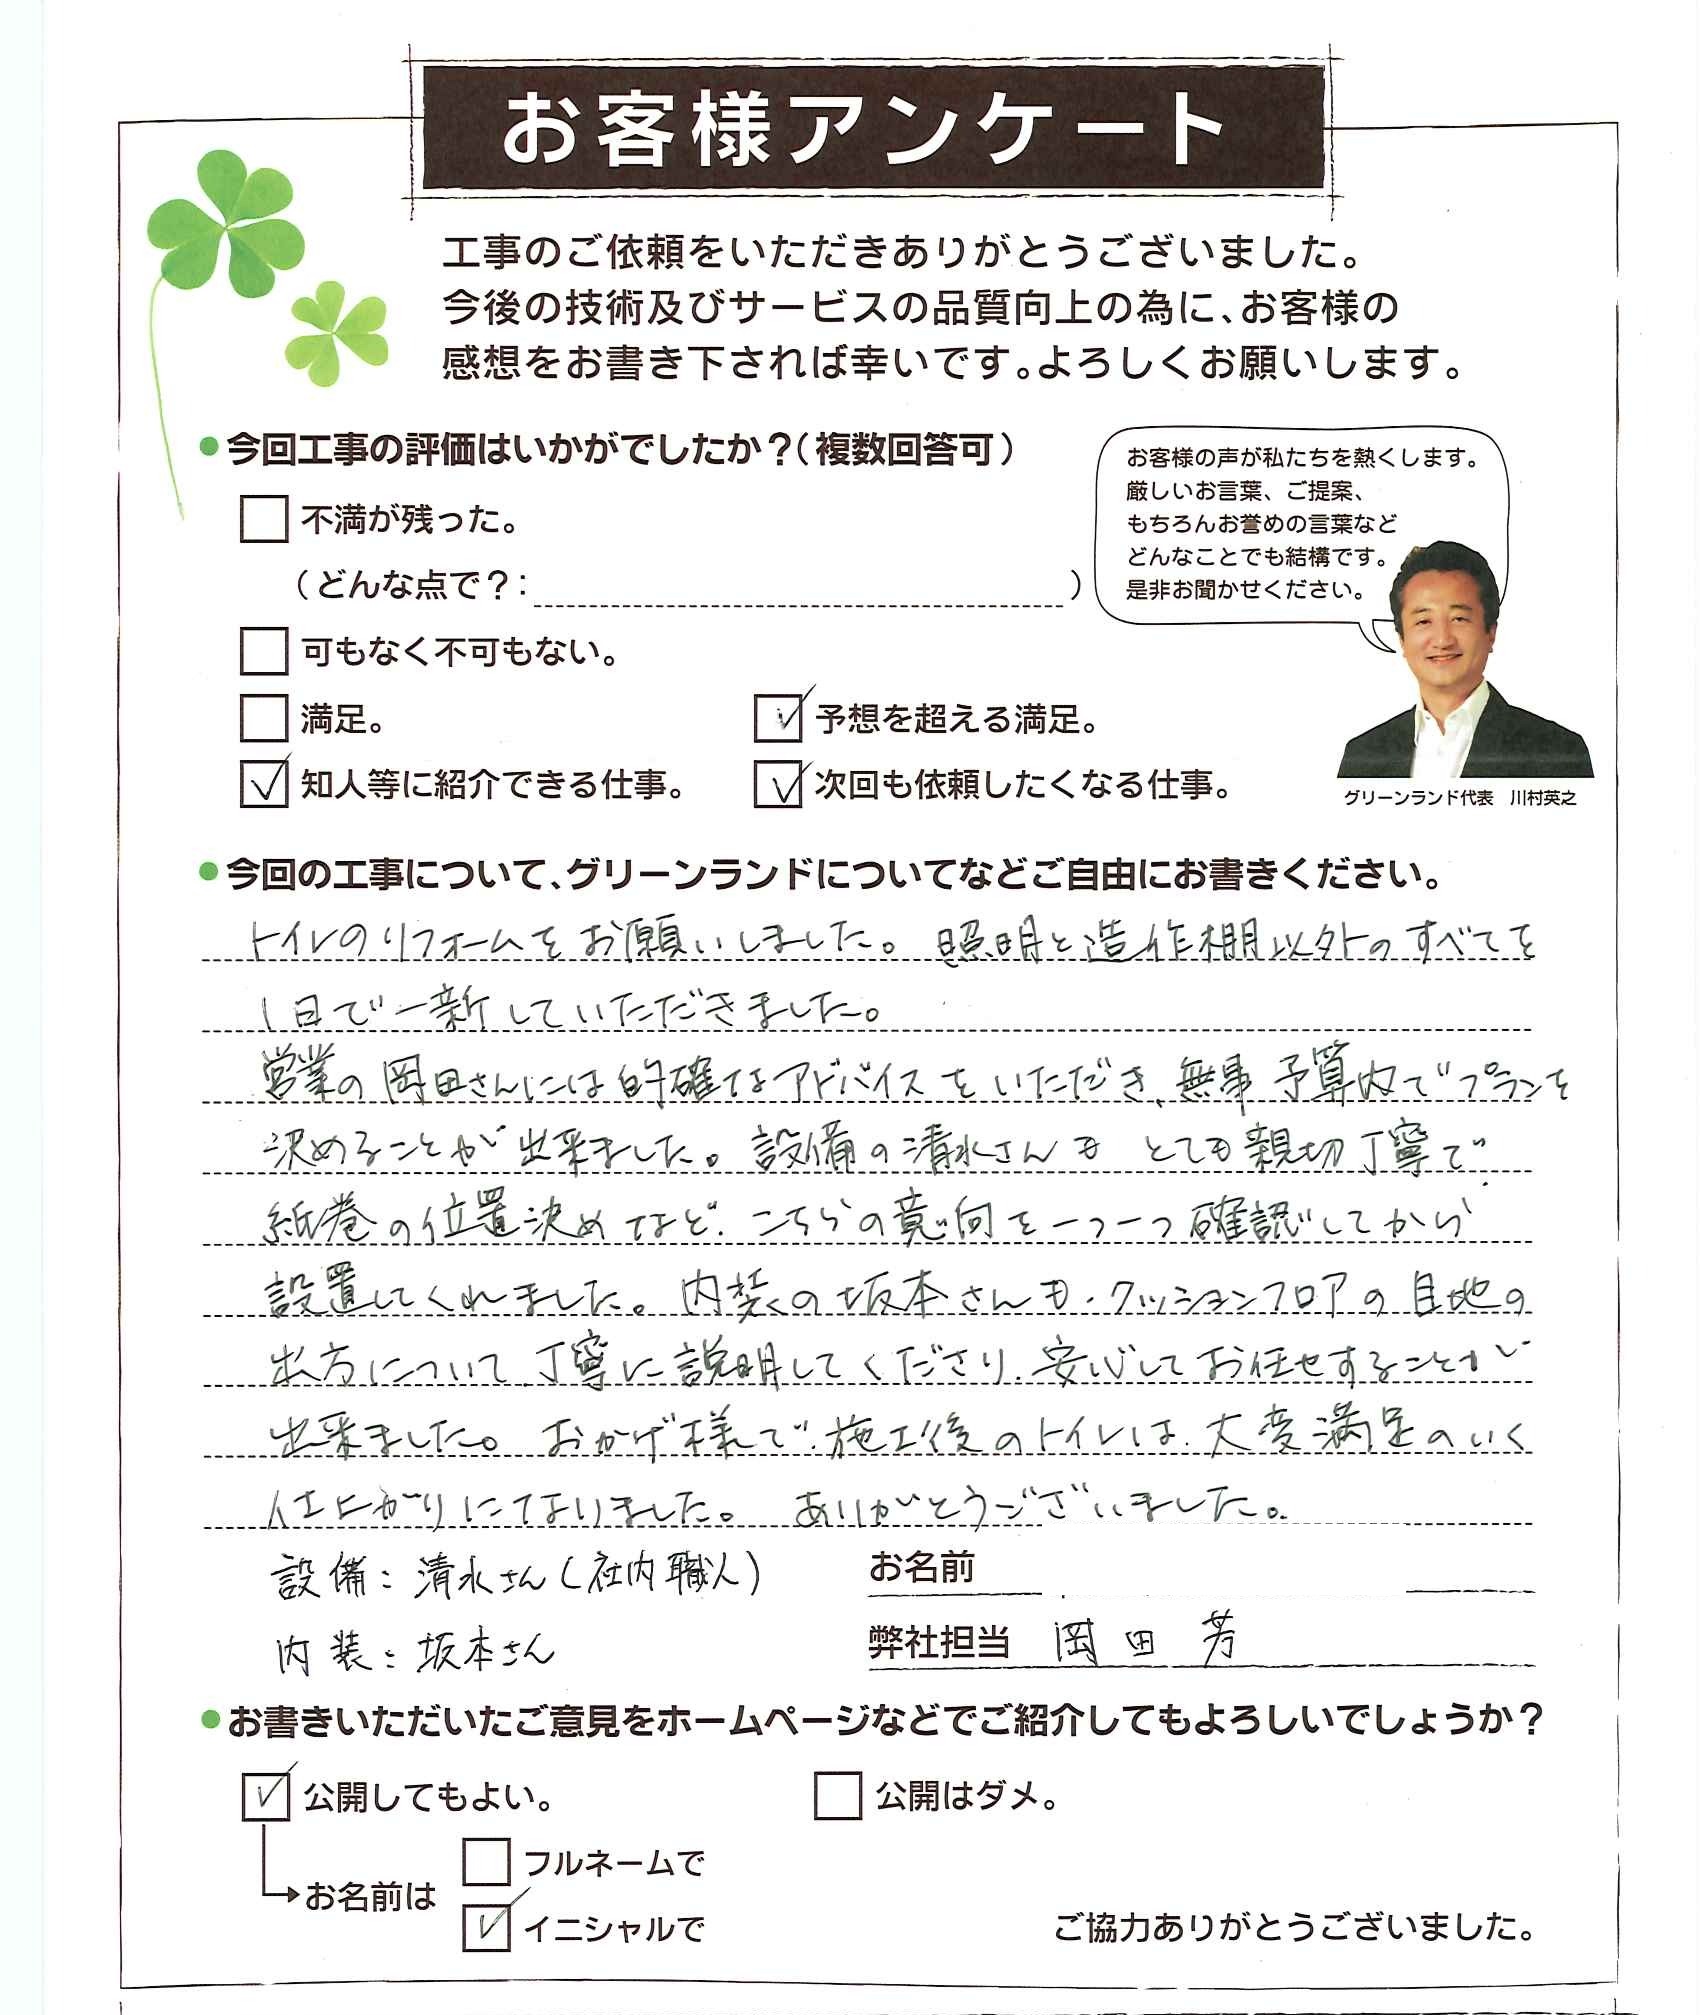 お客様アンケート
工事のご依頼をいただきありがとうございました。
今後の技術及びサービスの品質向上の為に、お客様の
感想をお書き下されば幸いです。よろしくお願いします。
●今回工事の評価はいかがでしたか？（複数回答可）
不満が残った。
（どんな点で？：　）
可もなく不可もない。
満足。
✓ 予想を超える満足。
✓ 知人等に紹介できる仕事。
✓ 次回も依頼したくなる仕事。
お客様の声が私たちを熱くします。
厳しいお言葉、ご提案、
もちろんお誉めの言葉など
どんなことでも結構です。
是非お聞かせください。
グリーンランド代表　川村英之
●今回の工事について、グリーンランドについてなどご自由にお書きください。
トイレのリフォームをお願いしました。照明と造作棚以外のすべてを
1日で一新していただきました。
営業の岡田さんには的確なアドバイスをいただき、無事予算内でプランを
決めることが出来ました。設備の清水さんも とても親切丁寧で
紙巻の位置決めなど、こちらの意向を一つ一つ確認してから
設置してくれました。内装の坂本さんも、クッションフロアの目地の
出方について、丁寧に説明してくださり、安心してお任せすることが
出来ました。おかげ様で、施工後のトイレは、大変満足のいく
仕上がりになりました。 ありがとうございました。
設備：清水さん（社内職人）
お名前
内装：坂本さん
弊社担当 岡田 芳
●お書きいただいたご意見をホームページなどでご紹介してもよろしいでしょうか？
✓ 公開してもよい。
公開はダメ。
フルネームで
お名前は
✓ イニシャルで
ご協力ありがとうございました。